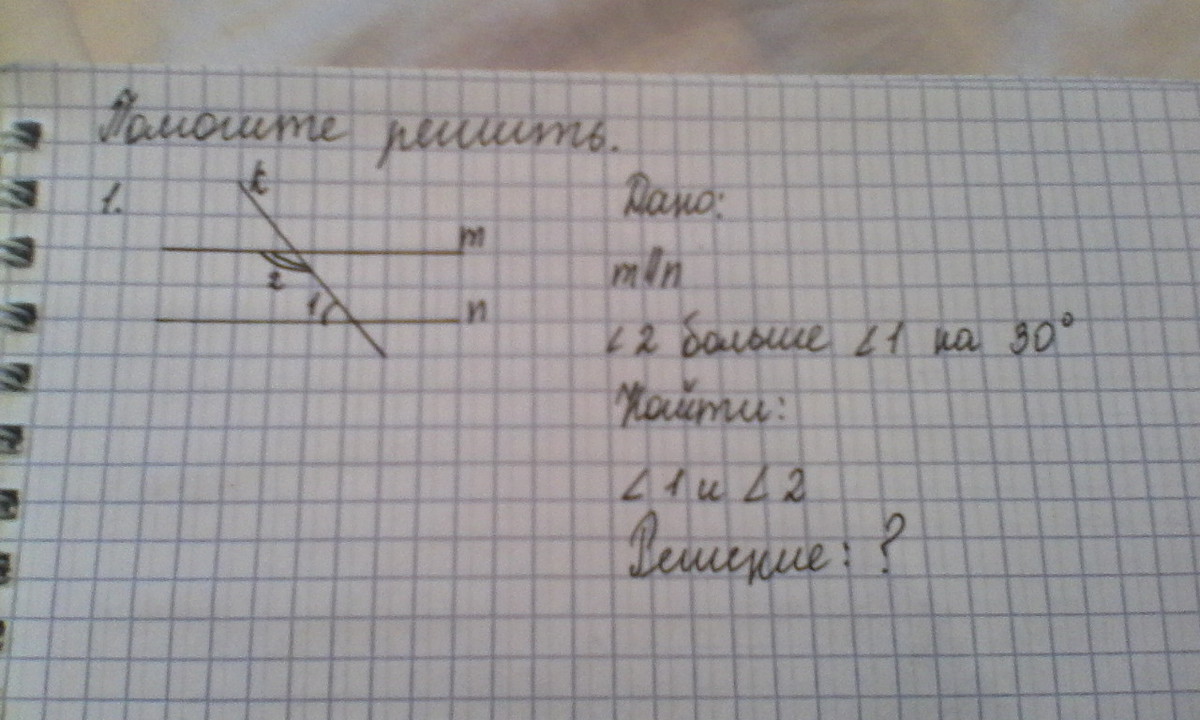 Помогите решить.
1.
k
m
2
1
n
Дано:
m||n
∠2 больше ∠1 на 30°
Найти:
∠1 и ∠2
Решение: ?